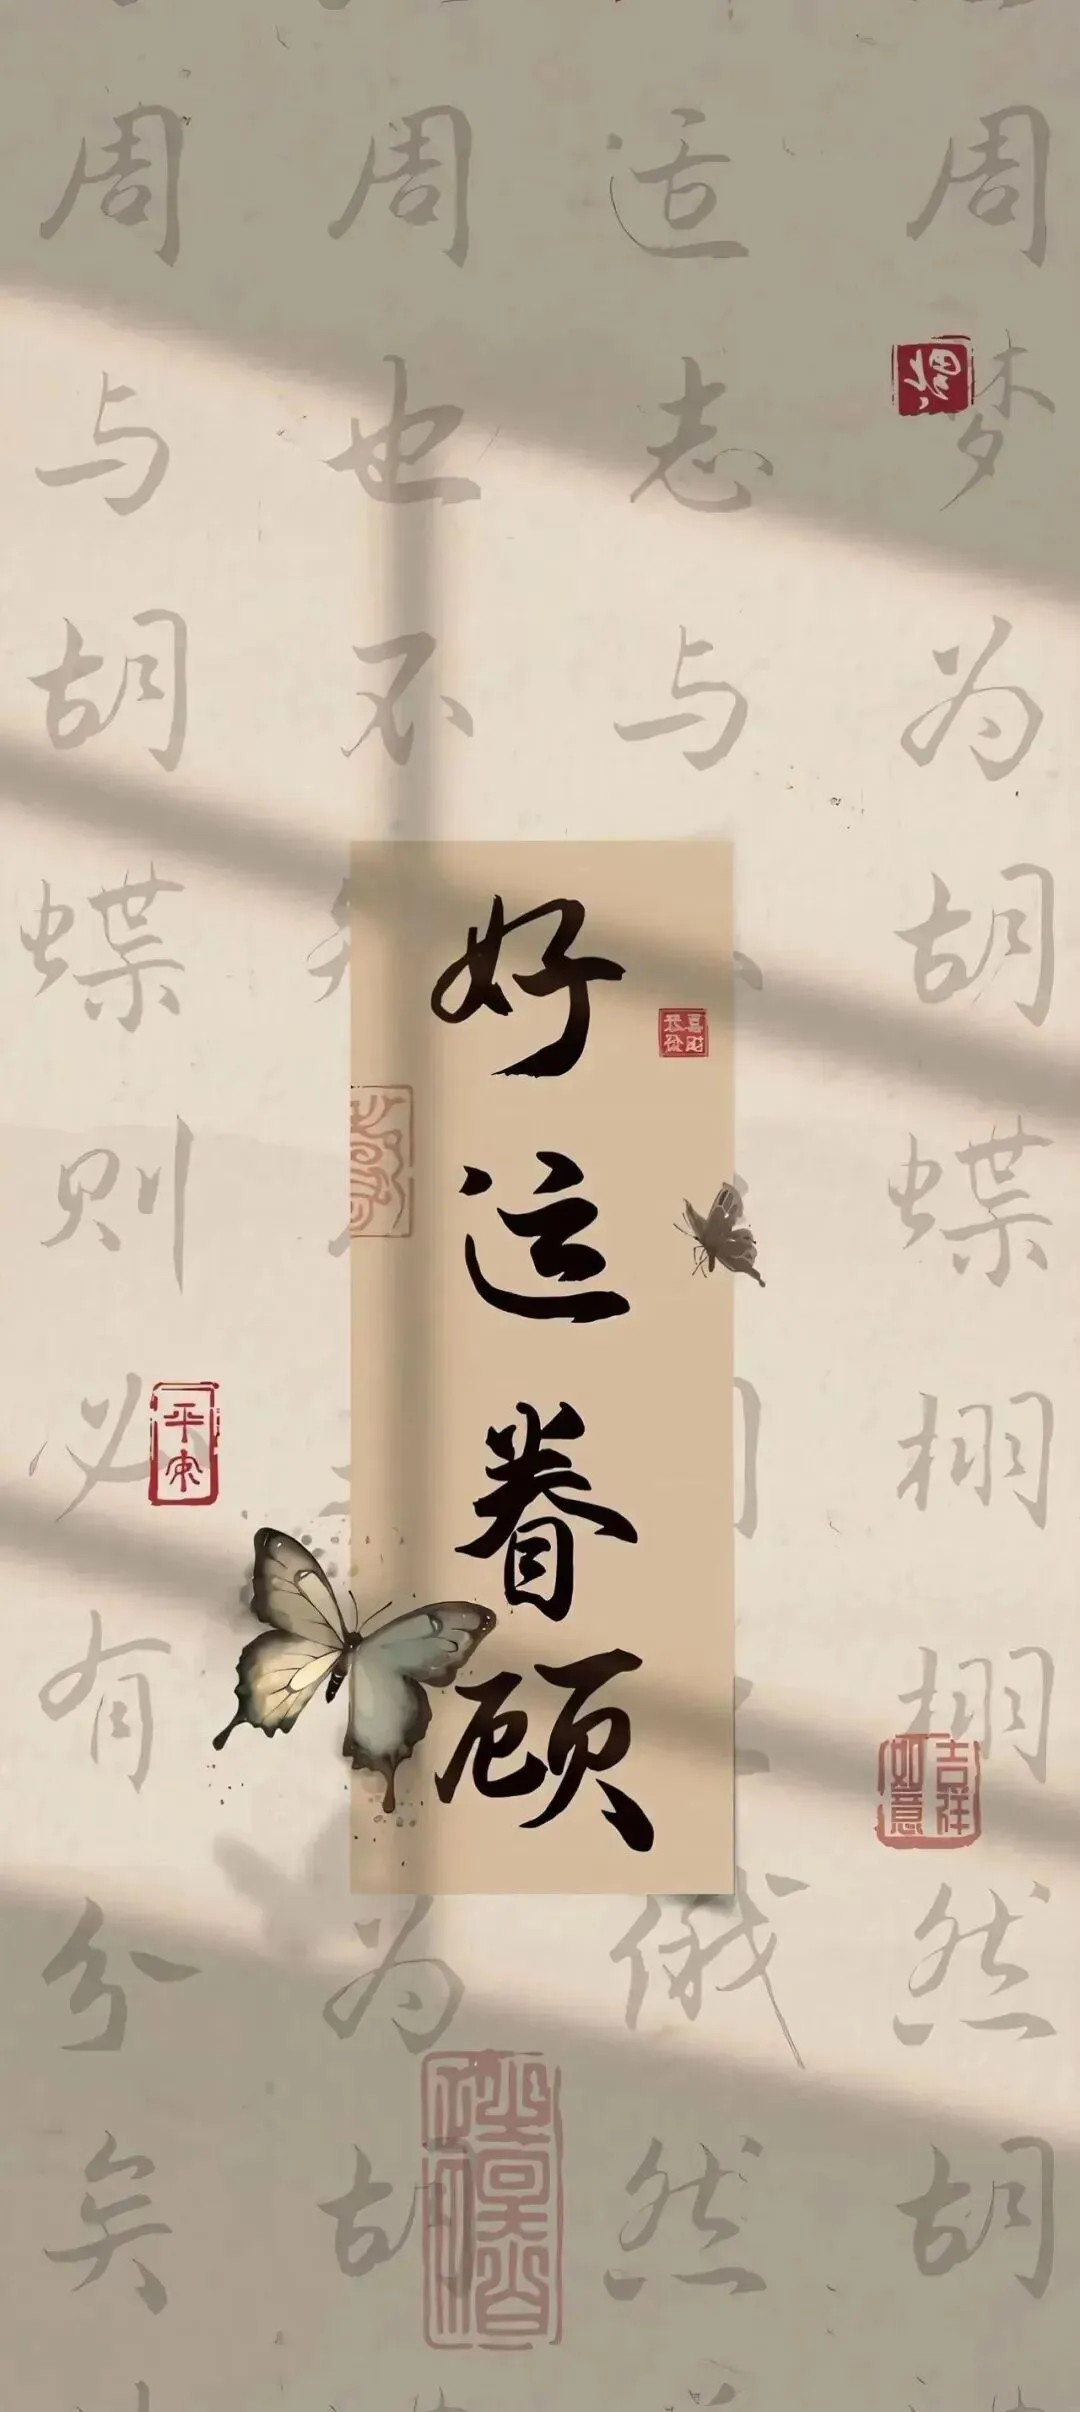 好运眷顾
周梦为胡蝶栩栩然胡
适志与
俄然
周也不
为胡
周与胡蝶则必有分矣
平安
吉祥如意